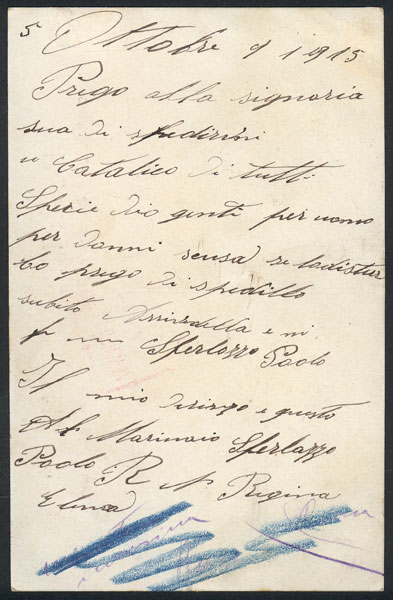 5 Ottobre 9 1915
Prego alla signoria
sua di spedirmi
u Catalico di tutti
Specie di o genti per uomo
per danni sensa se la distur
bo prego di spedillo
subito Arrivedella e mi
fir mo Sferlazzo Paolo
Il mio dirizo e questo
Al Marinaio Sferlazzo
Paolo R N Regina
Elena